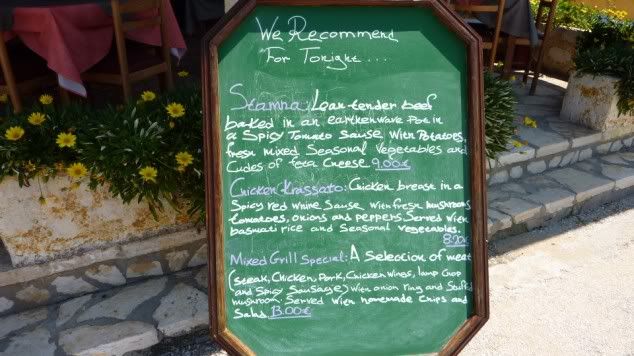 We Recommend
For Tonight ....
Stamna: Lean tender beef
baked in an earthenware Pot in
a Spicy Tomato Sause, with Potatoes,
fresh mixed Seasonal Vegetables and
Cudes of feta Cheese. 9,00€
Chicken Krassato: Chicken breast in a
Spicy red whine Sause with fresh mushrooms
tomatoes, onions and peppers. Served with
basmati rice and Seasonal vegetables.
8.20€
Mixed Grill Special: A Selection of meat
(steak, Chicken, Pork, Chicken Wines, lamp Chop
and Spicy Sausage) with onion ring and Stuffed
mushroom. Served with homemade Chips and
Salad. 13.00€